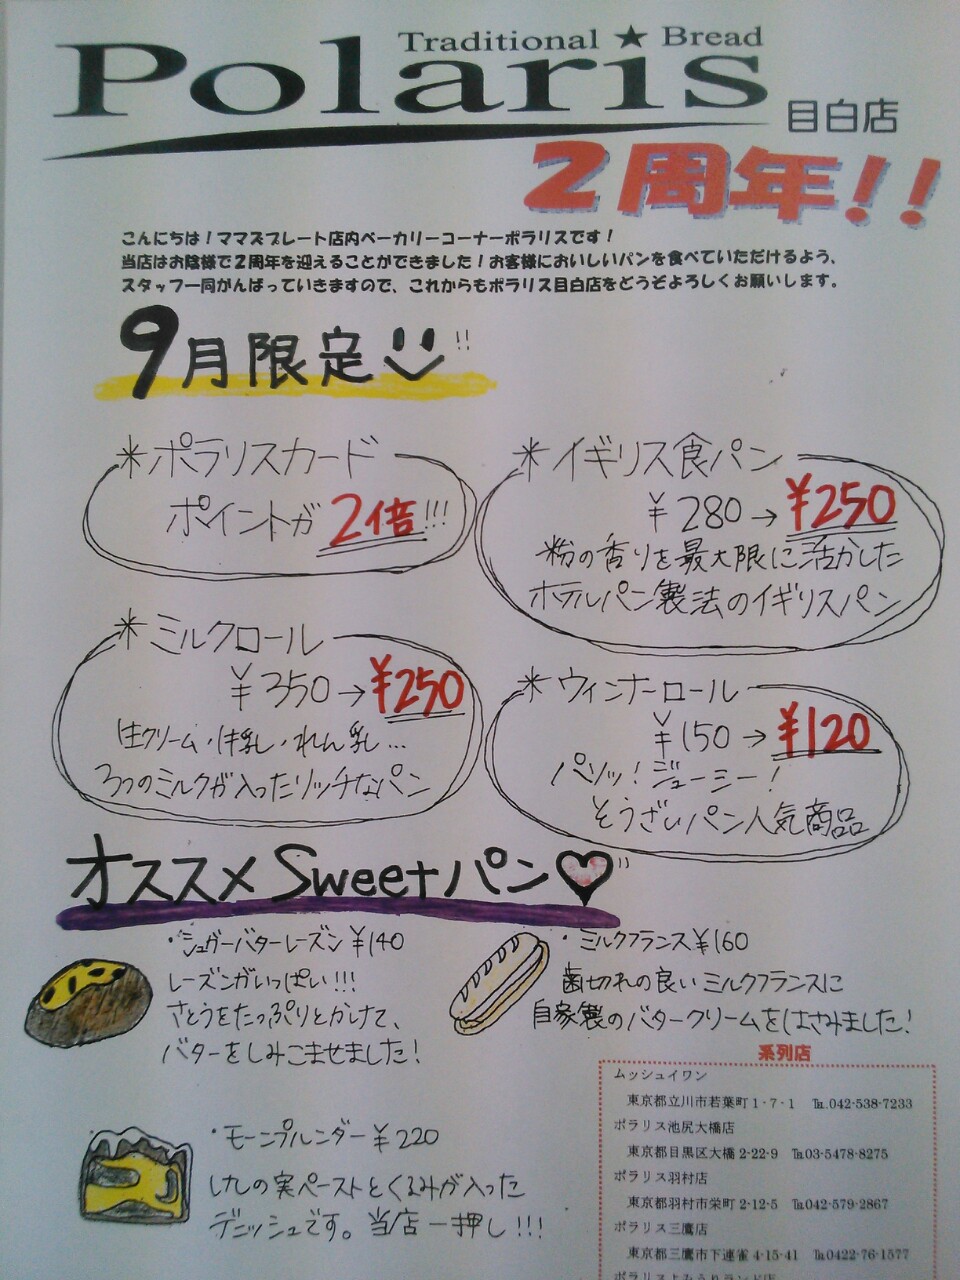 Traditional ★ Bread
Polaris 目白店
2周年!!
こんにちは!ママズプレート店内ベーカリーコーナーポラリスです!
当店はお陰様で2周年を迎えることができました!お客様においしいパンを食べていただけるよう、
スタッフ一同がんばっていきますので、これからもポラリス目白店をどうぞよろしくお願いします。
9月限定!!
*ポラリスカード
ポイントが2倍!!!
*イギリス食パン
¥280→¥250
粉の香りを最大限に活かした
ホテルパン製法のイギリスパン
*ミルクロール
¥350→¥250
生クリーム・牛乳・れん乳…
3つのミルクが入ったリッチなパン
*ウィンナーロール
¥150→¥120
パリッ!ジューシー!
そうざいパン人気商品
オススメSweetパン♡!!
・シュガーバターレーズン¥140
レーズンがいっぱい!!!
さとうをたっぷりとかけて、
バターをしみこませました!
・ミルクフランス¥160
歯切れの良いミルクフランスに
自家製のバタークリームをはさみました!
・モーンプルンダー¥220
けしの実ペーストとくるみが入った
デニッシュです。当店一押し!!!
系列店
ムッシュイワン
東京都立川市若葉町1-7-1 ℡.042-538-7233
ポラリス池尻大橋店
東京都目黒区大橋2-22-9 ℡03-5478-8275
ポラリス羽村店
東京都羽村市栄町2-12-5 ℡042-579-2867
ポラリス三鷹店
東京都三鷹市下連雀4-15-41 ℡0422-76-1577
ポラリスよみうりランド店